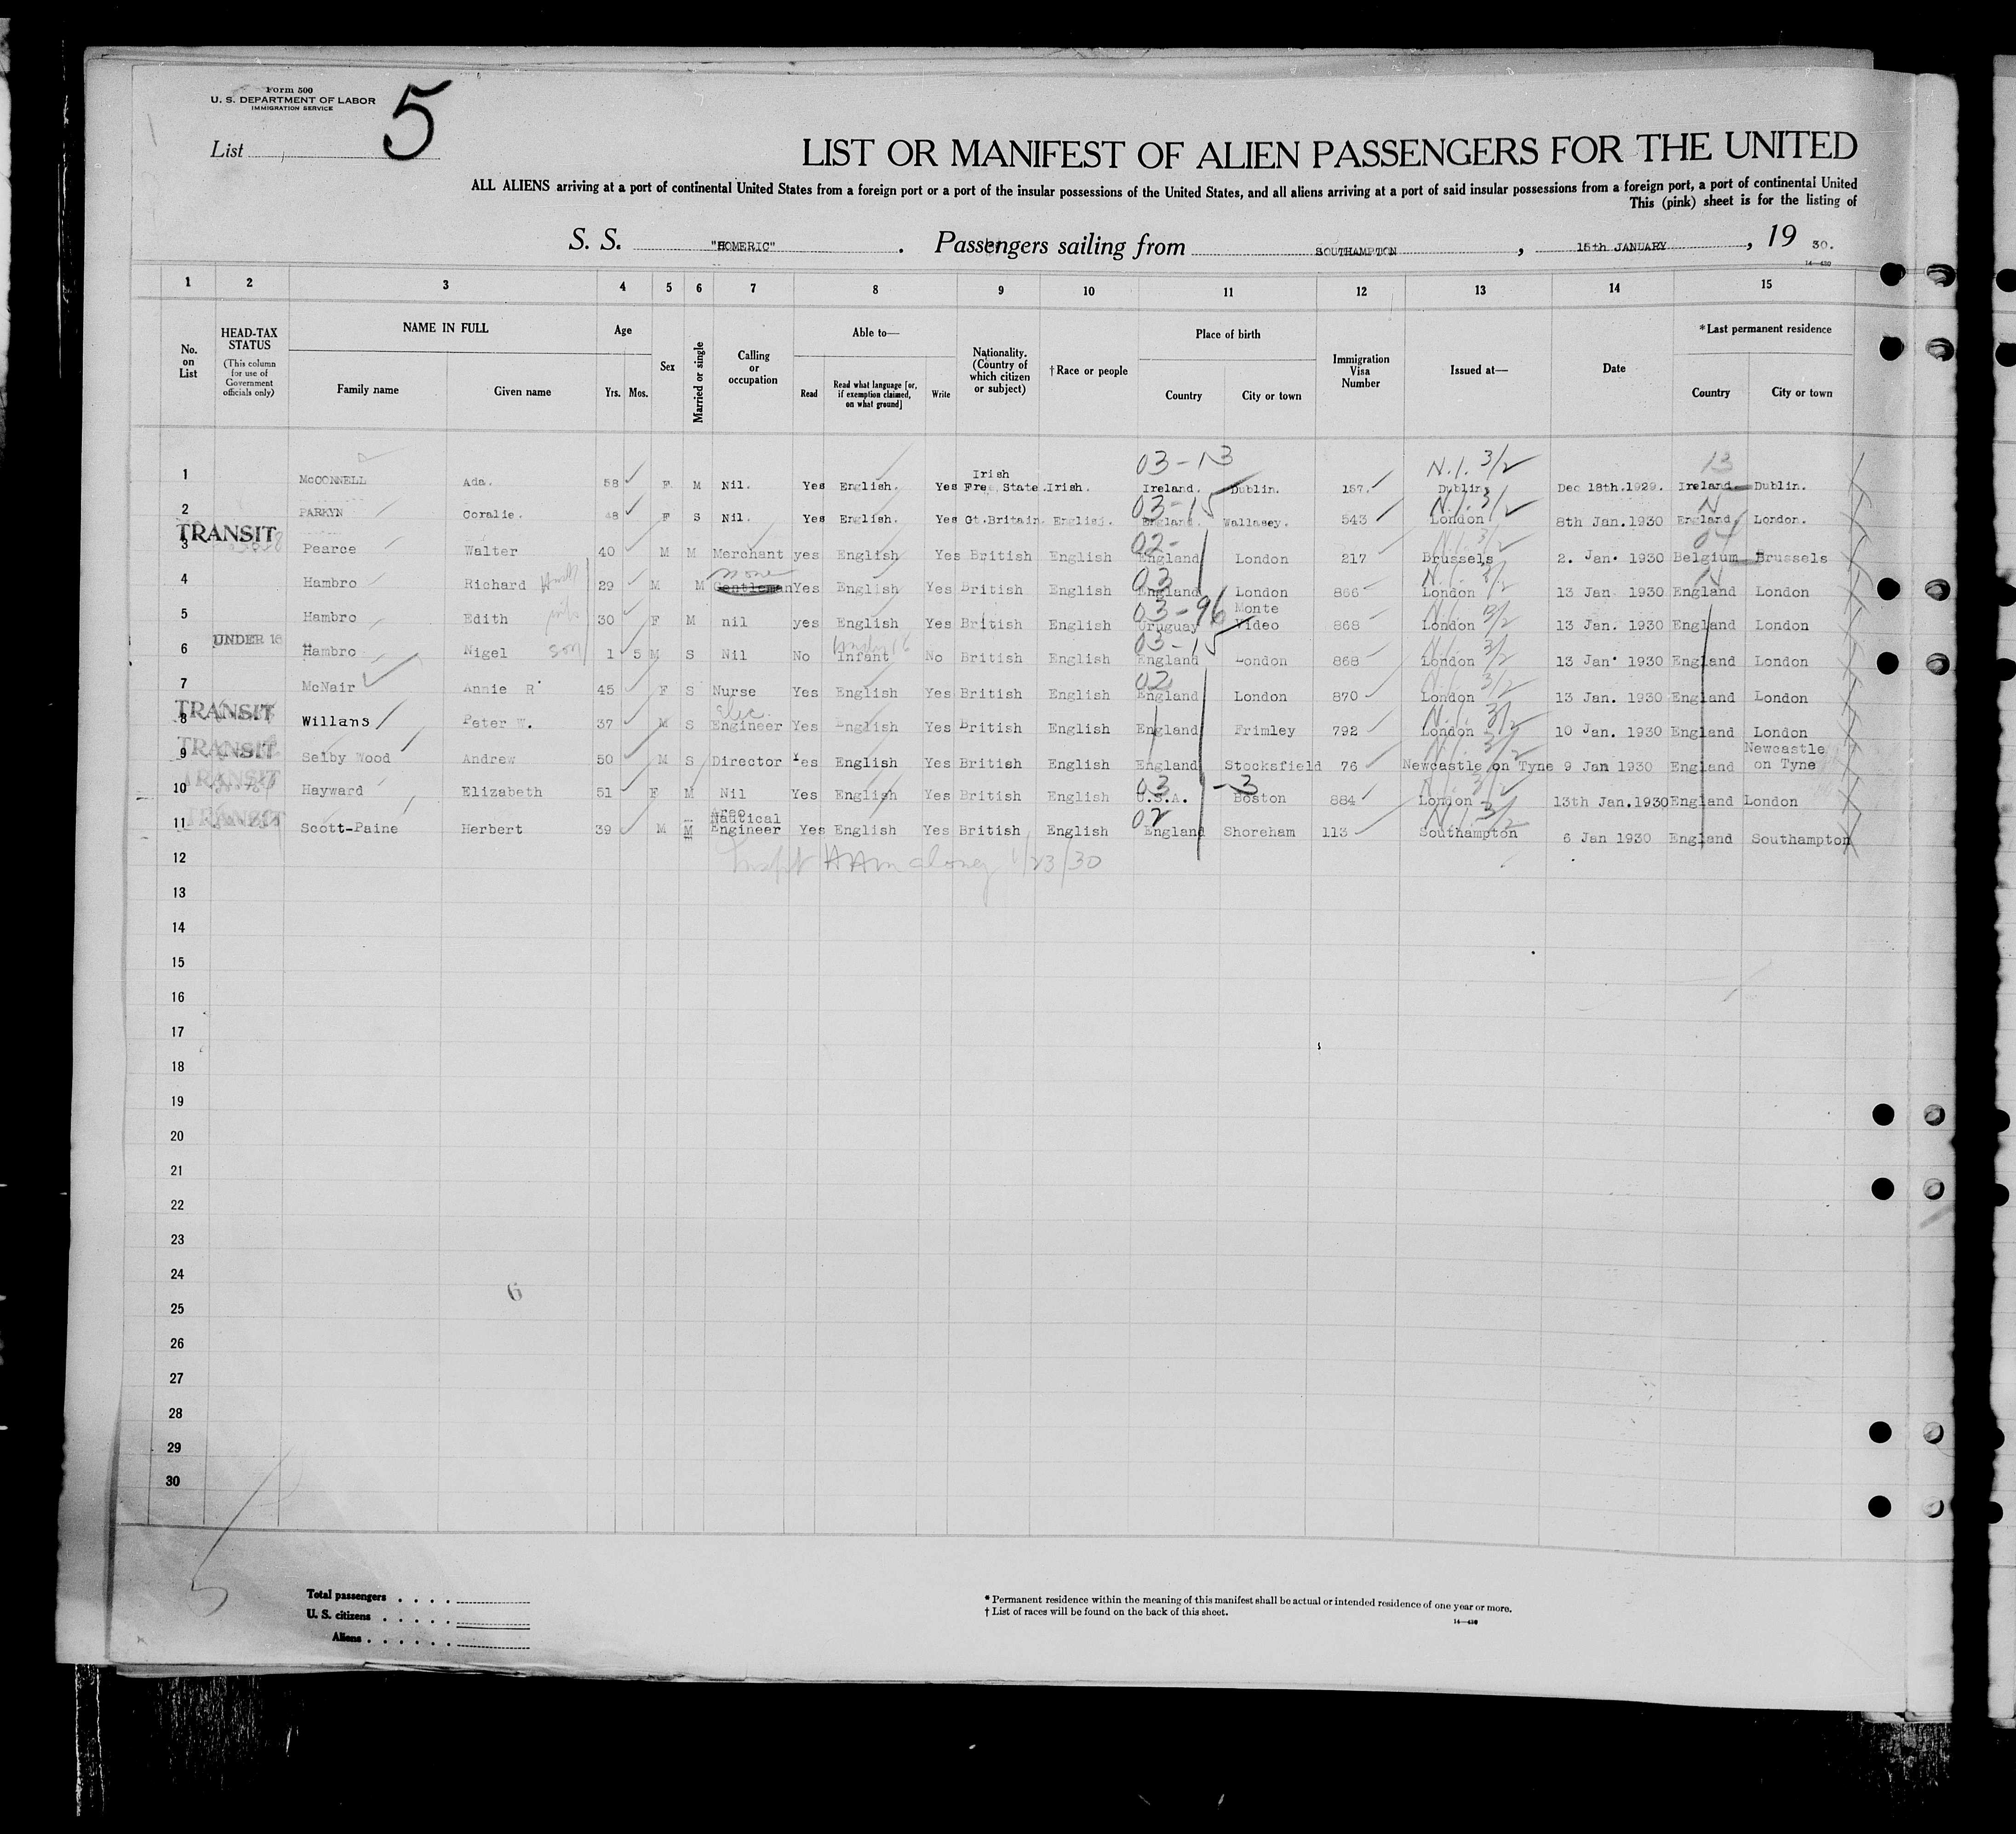 Form 500
U. S. DEPARTMENT OF LABOR
IMMIGRATION SERVICE
List 5
LIST OR MANIFEST OF ALIEN PASSENGERS FOR THE UNITED
ALL ALIENS arriving at a port of continental United States from a foreign port or a port of the insular possessions of the United States, and all aliens arriving at a port of said insular possessions from a foreign port, a port of continental United
This (pink) sheet is for the listing of
S. S. "HOMERIC". Passengers sailing from SOUTHAMPTON, 15th JANUARY, 19 30.
14—430
1 2 3 4 5 6 7 8 9 10 11 12 13 14 15
No. on List
HEAD-TAX STATUS (This column for use of Government officials only)
NAME IN FULL Family name Given name
Age Yrs. Mos.
Sex
Married or single
Calling or occupation
Able to— Read Read what language [or, if exemption claimed, on what ground] Write
Nationality. (Country of which citizen or subject)
†Race or people
Place of birth Country City or town
Immigration Visa Number
Issued at—
Date
*Last permanent residence Country City or town
03-13 N.I. 3/2 13
1 McCONNELL Ada. 58 F M Nil. Yes English. Yes Irish Free State. Irish. Ireland. Dublin. 157. Dublin Dec 18th.1929. Ireland Dublin.
03-15 N.I. 3/2 N
2 PARKYN Coralie. 48 F S Nil. Yes English. Yes Gt.Britain. English. England. Wallasey. 543 London 8th Jan.1930 England London.
TRANSIT 02- N.I. 3/2 04
3 Pearce Walter 40 M M Merchant yes English Yes British English England London 217 Brussels 2. Jan. 1930 Belgium Brussels
none 03 N.I. 3/2 N
4 Hambro Richard 29 M M Gentleman Yes English Yes British English England London 866 London 13 Jan 1930 England London
03-96 N.I. 3/2
5 Hambro Edith 30 F M nil yes English Yes British English Uruguay Monte Video 868 London 13 Jan. 1930 England London
UNDER 16 03-15 N.I. 3/2
6 Hambro Nigel son 1 5 M S Nil No Infant No British English England London 868 London 13 Jan. 1930 England London
02 N.I. 3/2
7 McNair Annie R. 45 F S Nurse Yes English Yes British English England London 870 London 13 Jan. 1930 England London
TRANSIT Elec. N.I. 3/2
8 Willans Peter W. 37 M S Engineer Yes English Yes British English England Frimley 792 London 10 Jan. 1930 England London
TRANSIT N.I. 3/2
9 Selby Wood Andrew 50 M S Director Yes English Yes British English England Stocksfield 76 Newcastle on Tyne 9 Jan 1930 England Newcastle on Tyne
TRANSIT 03 -3 N.I. 3/2
10 Hayward Elizabeth 51 F M Nil Yes English Yes British English U.S.A. Boston 884 London 13th Jan.1930 England London
TRANSIT 02 N.I. 3/2
11 Scott-Paine Herbert 39 M M Aero Nautical Engineer Yes English Yes British English England Shoreham 113 Southampton 6 Jan 1930 England Southampton
12 1/23/30
13
14
15
16
17
18
19
20
21
22
23
24
6
25
26
27
28
29
30
5
Total passengers
U. S. citizens
Aliens
* Permanent residence within the meaning of this manifest shall be actual or intended residence of one year or more.
† List of races will be found on the back of this sheet.
14—430